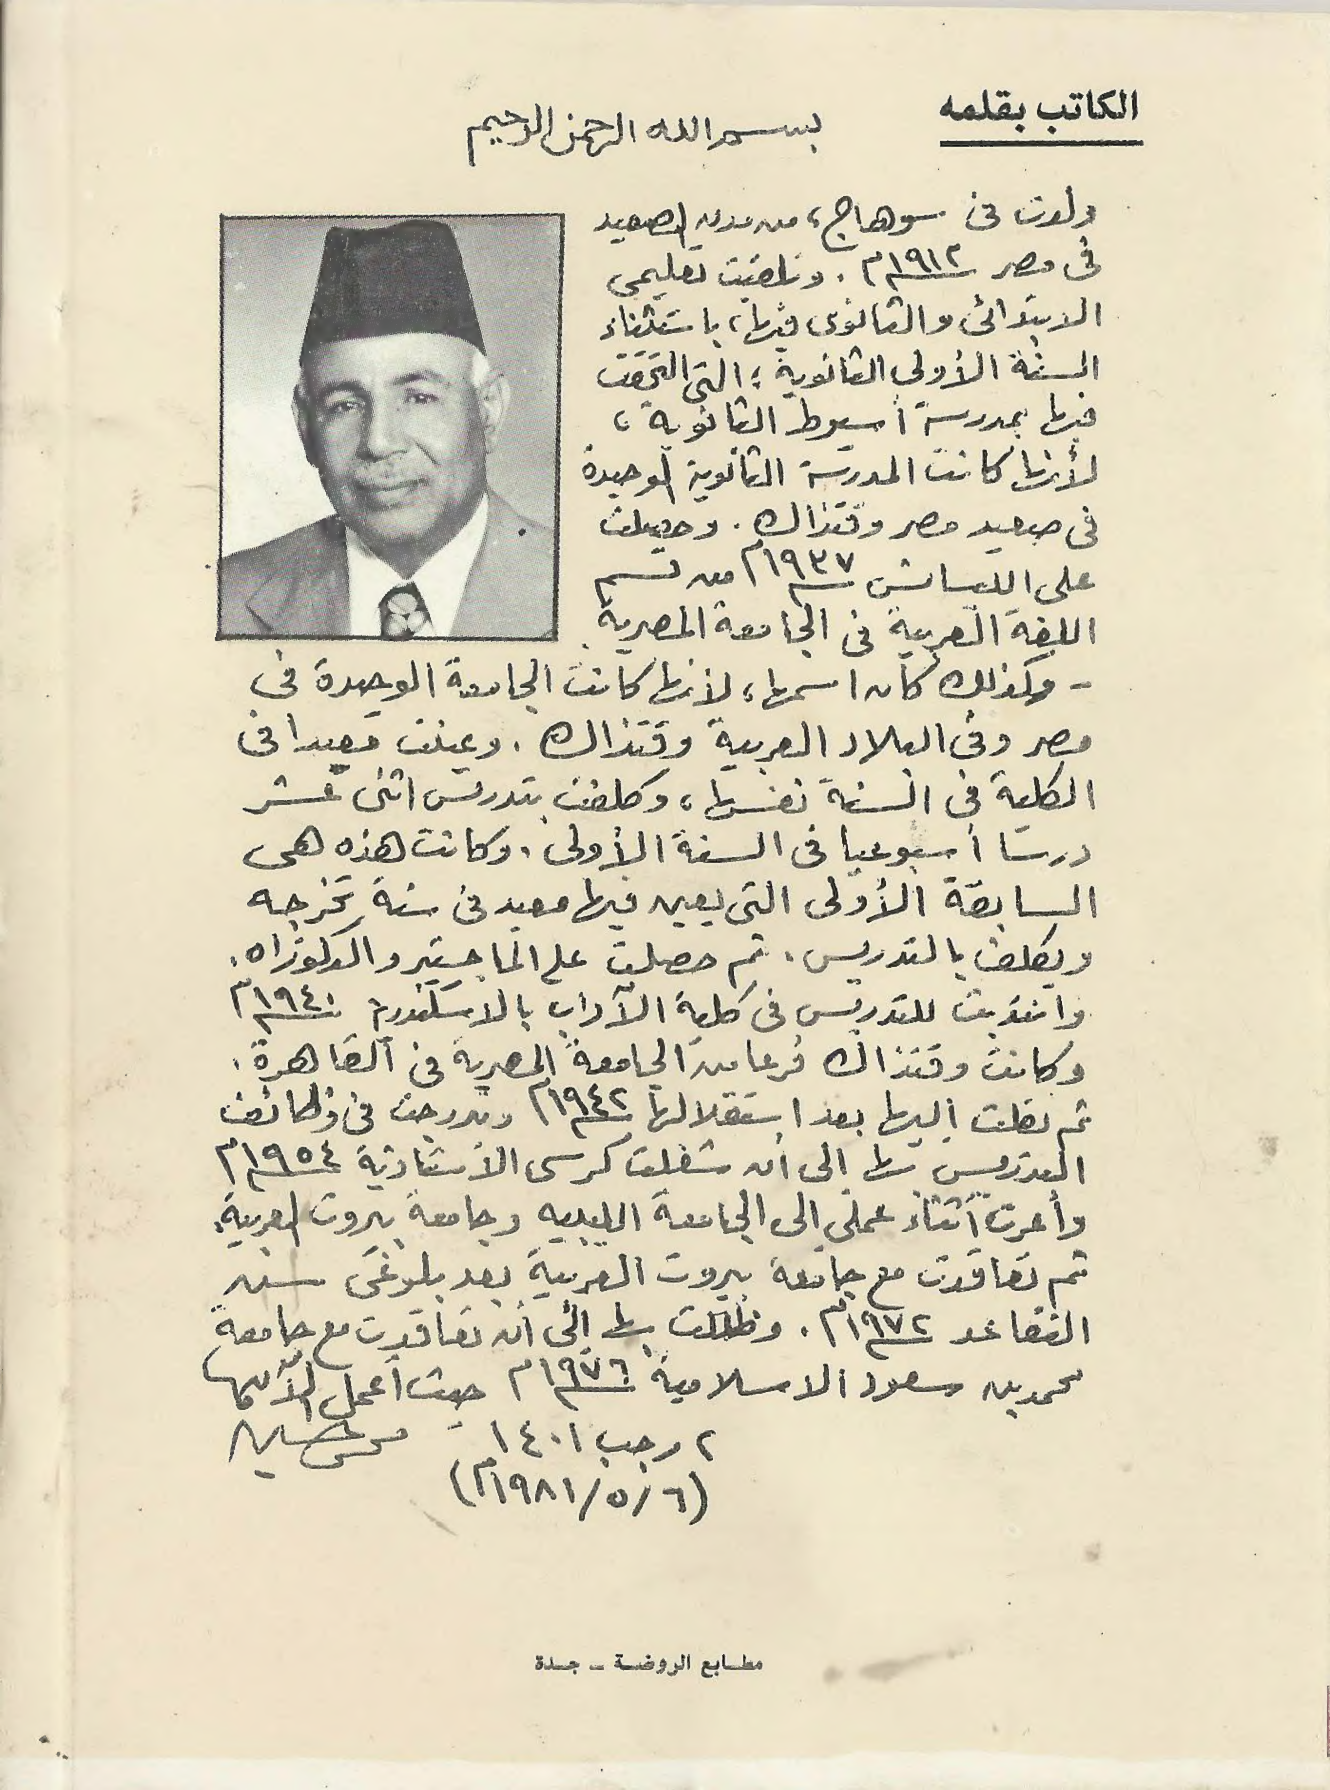 الكاتب بقلمه
بسم الله الرحمن الرحيم
ولدت فى سوهاج، من مدن الصعيد
فى مصر ١٩١٢م. وتلقيت تعليمى
الابتدائى والثانوى فيها، باستثناء
السنة الأولى الثانوية؛ التى التحقت
فيها بمدرسة أسيوط الثانوية،
لأنها كانت المدرسة الثانوية الوحيدة
فى صعيد مصر وقتذاك. وحصلت
على الليسانس ١٩٣٧م من قسم
اللغة العربية فى الجامعة المصرية
- وكذلك كان اسمها، لأنها كانت الجامعة الوحيدة فى
مصر وفى البلاد العربية وقتذاك. وعينت معيدا فى
الكلية فى السنة نفسها، وكلفت بتدريس اثنى عشر
درسا أسبوعيا فى السنة الأولى. وكانت هذه هى
السابقة الأولى التى يعين فيها معيد فى سنة تخرجه
ويكلف بالتدريس. ثم حصلت على الماجستير والدكتوراه.
وانتدبت للتدريس فى كلية الآداب بالاسكندرية ١٩٤٠م
وكانت وقتذاك فرعا من الجامعة المصرية فى القاهرة.
ثم نقلت إليها بعد استقلالها ١٩٤٢م وتدرجت فى وظائف
التدريس بها إلى أن شغلت كرسى الأستاذية ١٩٥٤م
وأعرت أثناء عملى إلى الجامعة الليبية وجامعة بيروت العربية.
ثم تعاقدت مع جامعة بيروت العربية بعد بلوغى سن
التقاعد ١٩٧٢م. وظللت بها إلى أن تعاقدت مع جامعة
محمد بن سعود الاسلامية ١٩٧٦م حيث أعمل الآن بها
٢ رجب ١٤٠١
محمد حسين
(٦/٥/١٩٨١م)
مطابع الروضة - جدة